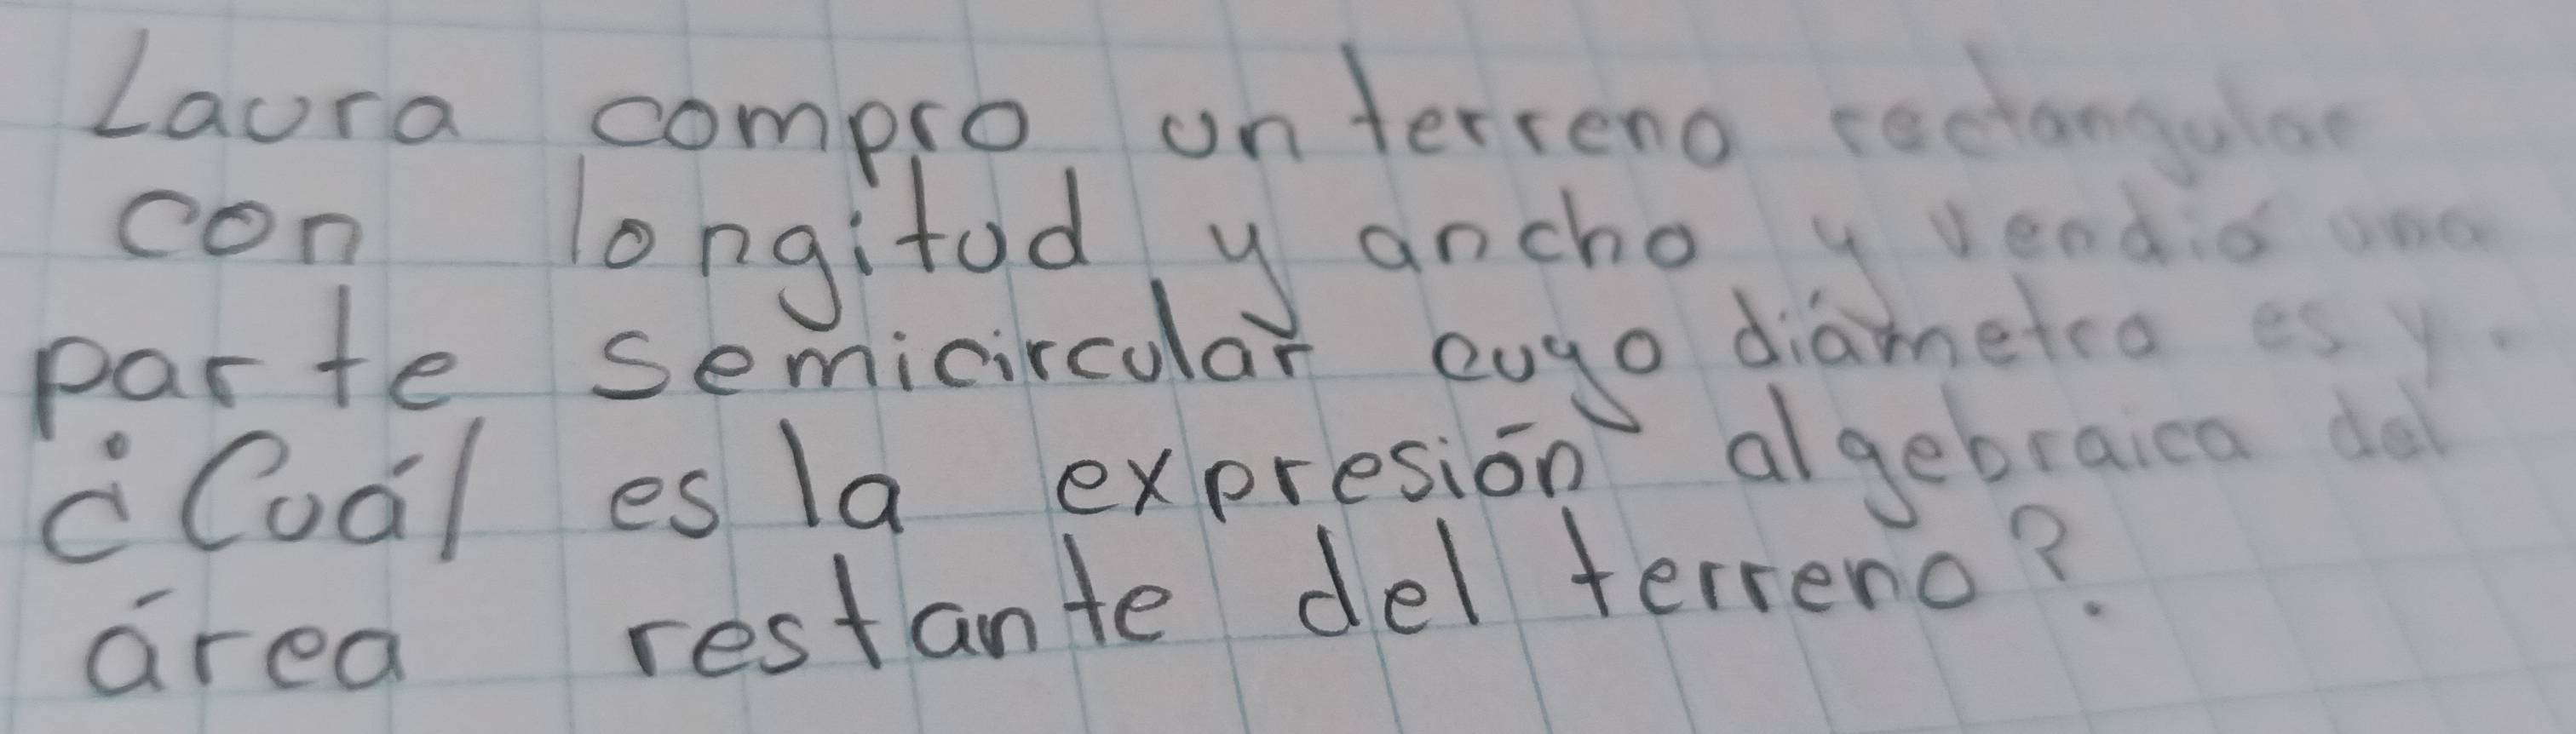 Laura compro un terreno rectangular
con longitud y ancho y vendió una
parte semicircular cuyo diámetro es y.
¿Cuál es la expresión algebraica del
área restante del terreno?